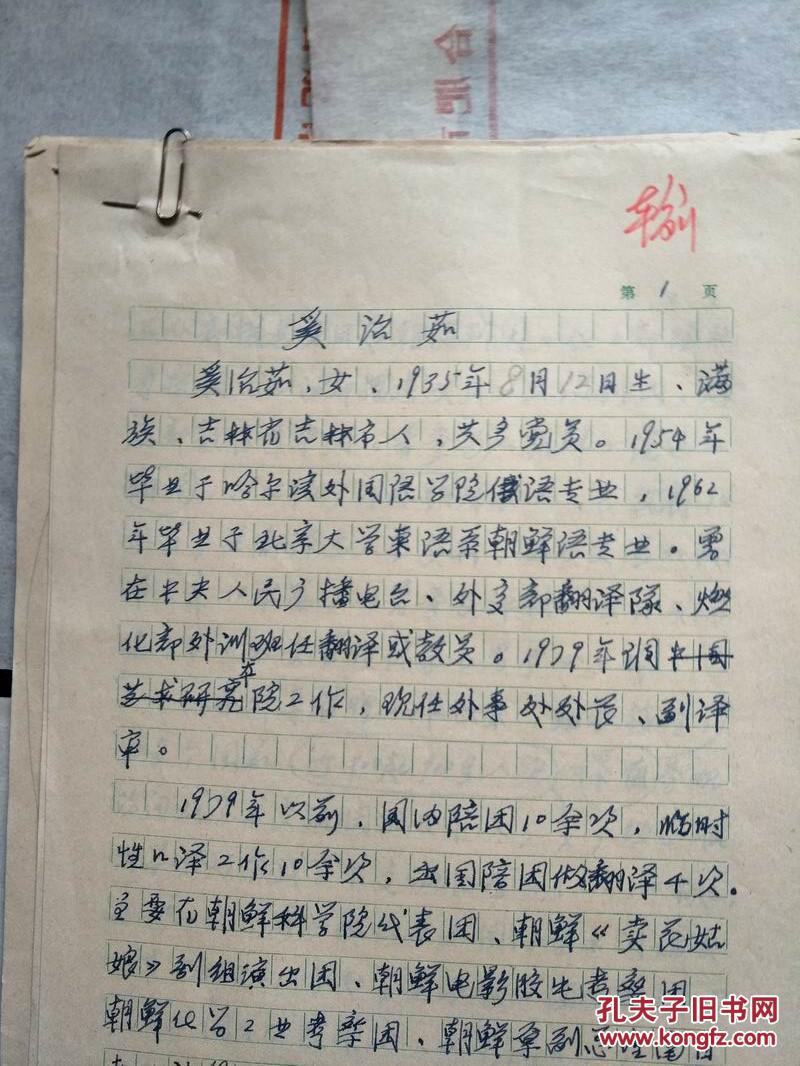 输
第 1 页
奚治茹
奚治茹、女、1935年8月12日生、满
族、吉林省吉林市人,共产党员。1954年
毕业于哈尔滨外国语学院俄语专业,1962
年毕业于北京大学东语系朝鲜语专业。曾
在中央人民广播电台、外交部翻译队、燃
化部外训班任翻译或教员。1979年调中国
艺术研究院工作,现任外事处处长、副译
本
审。
1979年以前,国内陪团10余次,临时
性口译工作10余次,出国陪团做翻译4次。
主要有朝鲜科学院代表团、朝鲜《卖花姑
娘》剧组演出团、朝鲜电影胶片考察团、
朝鲜化学工业考察团、朝鲜某副总理
孔夫子旧书网
www.kongfz.com